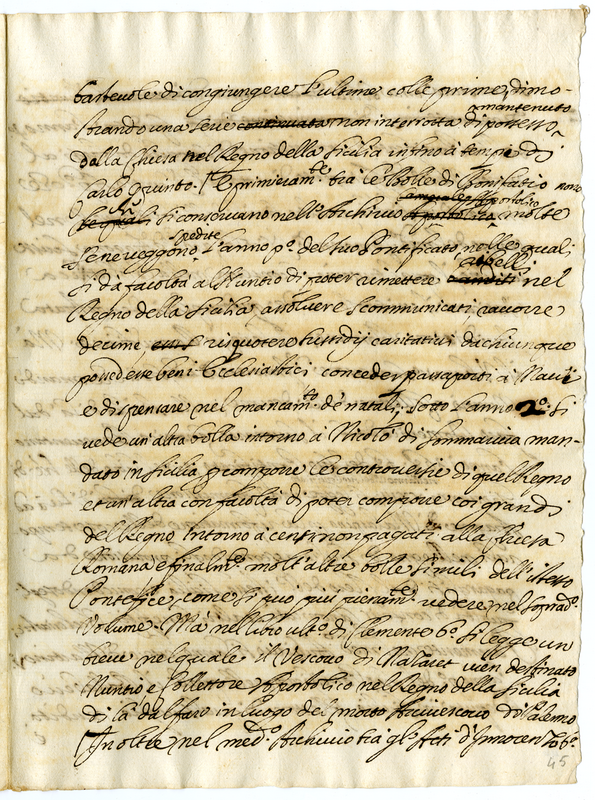 bastevole di congiungere l'ultime colle prime, dimo-
mantenuto
strando una serie continuata non interrotta di possesso
dalla Chiesa nel Regno della Sicilia insino à tempi di
Carlo Quinto. E primieram.te trà le Bolle di Bonifatio nono
che si conservano nell'Archivio Apostolico molte
spedite
se ne veggono l'anno p.o del suo Pontificato, nelle quali
ribelli
si dà facoltà al Nuntio di poter rimettere banditi nel
Regno della Sicilia, assolvere scommunicati, riscuotere
decime, risquotere sussidij caritativi da chiunque
possedesse beni Ecclesiastici conceder passaporti à Navi
e dispensare nel mancam.to de natali; sotto l'anno 2.o si
vede un'altra bolla intorno à Nicolò di Sommariva man-
dato in Sicilia p comporre le controversie di quel Regno
et un'altra con facoltà di poter comporre coi grandi
del Regno intorno à censi non pagati alla Chiesa
Romana e finalm.te molt'altre bolle simili dell'istesso
Pontefice, come si può più pienam.te vedere nel soprad.o
Volume. Mà nel libro ult.o di Clemente 6.o si legge un
breve nel quale il Vescovo di Nazaret vien destinato
Nuntio e Collettore Apostolico nel Regno della Sicilia
di là dal faro in luogo del morto Arcivescovo di Palermo
Inoltre nel med.o Archivio trà gl'Atti d'Innocenzo 6.o
45